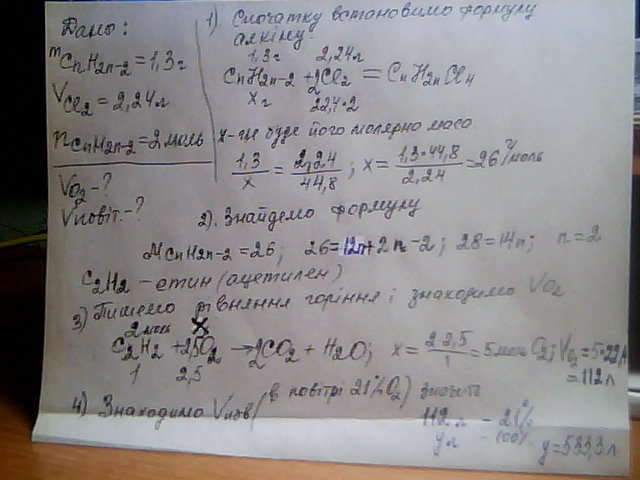 Дано:
mCnH2n-2 = 1,3г
VCl2 = 2,24л
nCnH2n-2 = 2 моль
VO2 - ?
Vповіт. - ?
1) Спочатку встановимо формулу
алкіну:
1,3г 2,24л
CnH2n-2 + 2Cl2 = CnH2nCl4
x г 22,4·2
x - це буде його молярна маса
1,3/x = 2,24/44,8; x = 1,3·44,8/2,24 = 26 г/моль
2). Знайдемо формулу
MCnH2n-2 = 26; 26 = 12n + 2n - 2; 28 = 14n; n = 2
C2H2 - етин (ацетилен)
3) Пишемо рівняння горіння і знаходимо VO2
2 моль x
C2H2 + 2,5O2 → 2CO2 + H2O; x = 2·2,5/1 = 5 моль O2; VO2 = 5·22,4
1 2,5 = 112 л
4) Знаходимо Vпов (в повітрі 21% O2) значить
112 л - 21%
y л - 100% y = 533,3 л